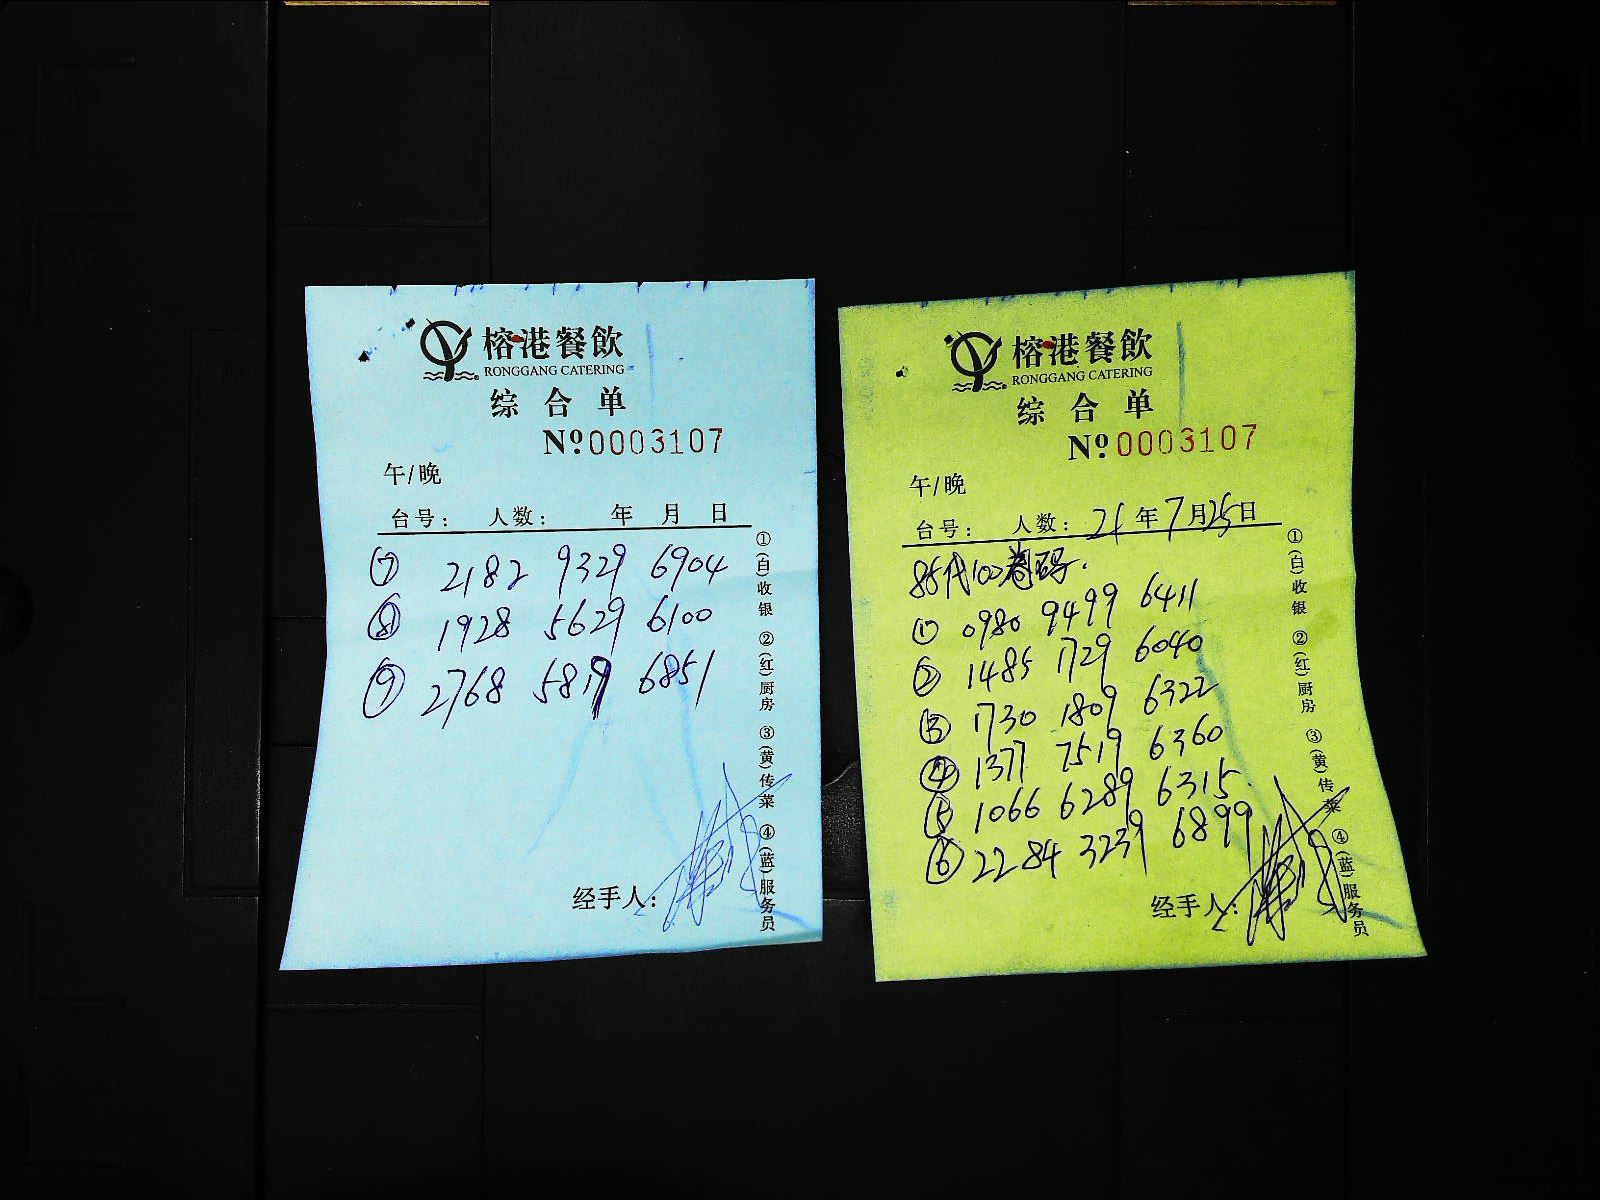 榕港餐飲
RONGGANG CATERING
综合单
Nº:0003107
午/晚
台号: 人数: 年 月 日
⑦ 2182 9329 6904
⑧ 1928 5629 6100
⑨ 2768 5819 6851
经手人:
①(白)收银 ②(红)厨房 ③(黄)传菜 ④(蓝)服务员
榕港餐飲
RONGGANG CATERING
综合单
Nº:0003107
午/晚
台号: 人数: 21年7月25日
85代100卷码.
① 0980 9499 6411
② 1485 1729 6040
③ 1730 1809 6322
④ 1377 7519 6360
⑤ 1066 6289 6315.
⑥ 2284 3239 6899
经手人:
①(白)收银 ②(红)厨房 ③(黄)传菜 ④(蓝)服务员